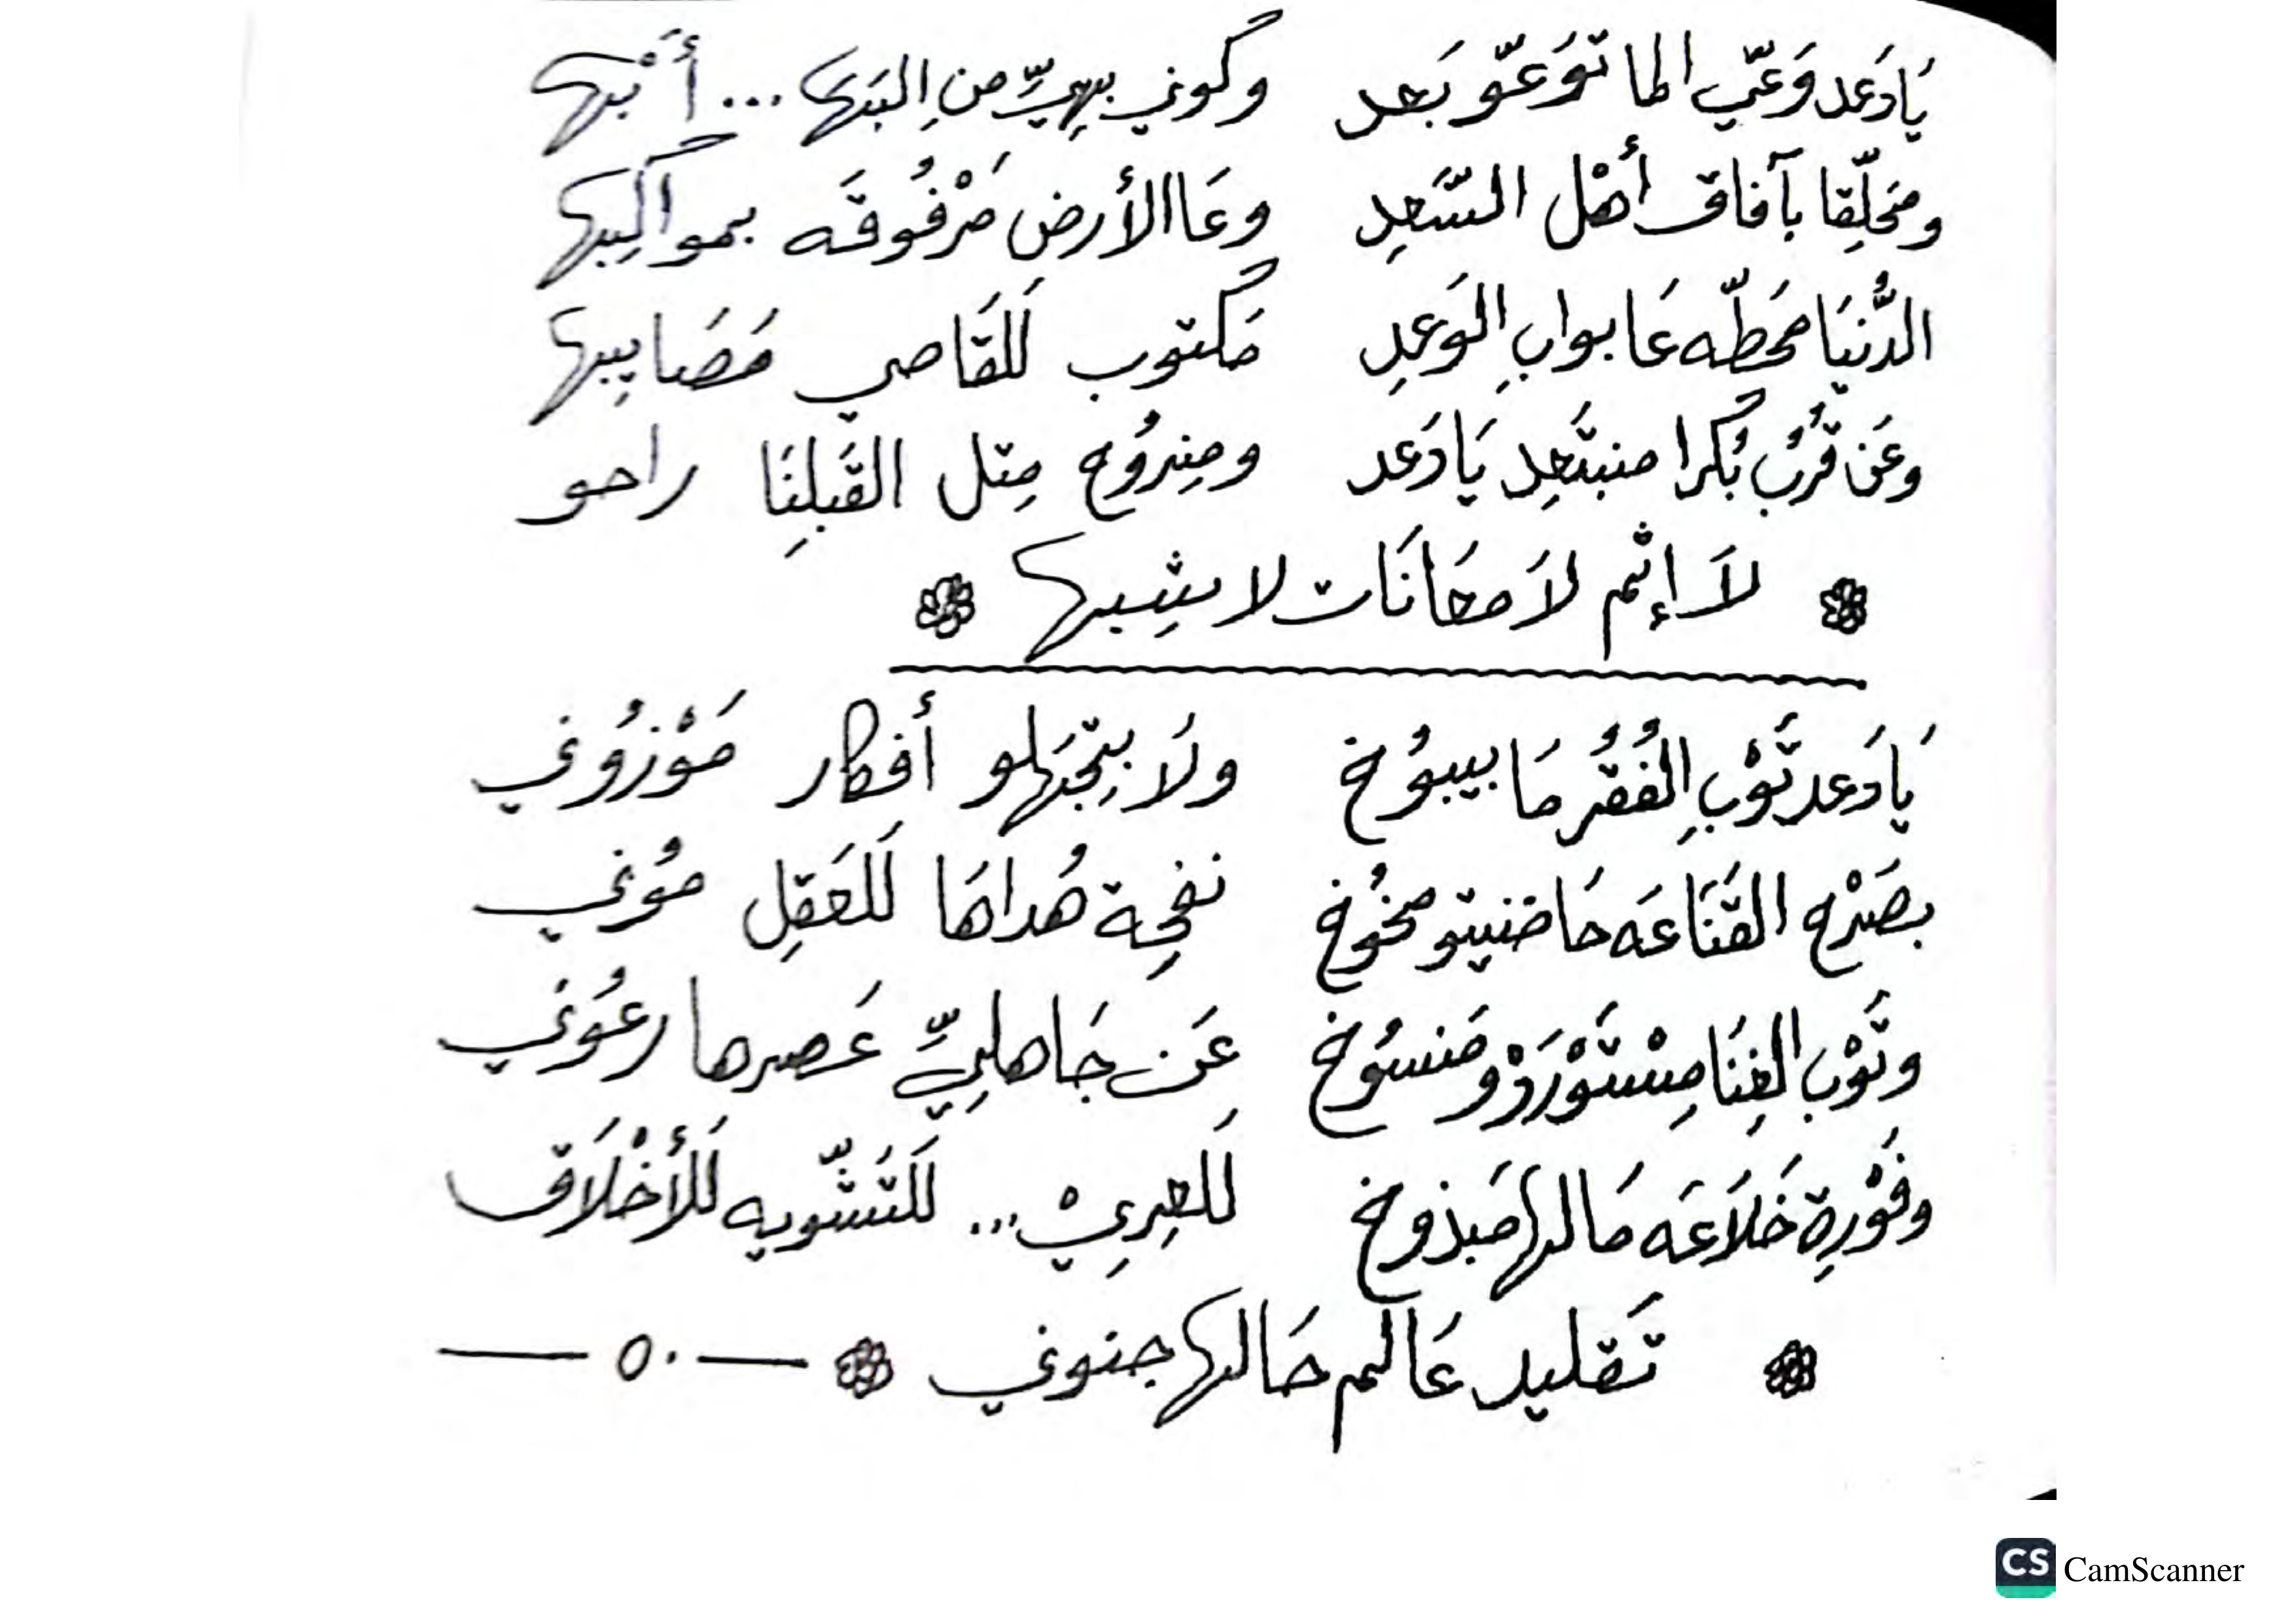 يَا دَعد وَعّي الما توَعّو بَعد    وكوني بهيّه من البَها ... أبْها
ومَحلّقا بآفاق أهْل السَّعد    وعَا الأرض مَرْفُوقَه بمواكبها
الدُّنيَا محَطّه عَا بوابِ الوَعدِ    مَكتوب لَلقَاصي مَصَايبها
وعَن قُربُ بُكرا منبتَعِد يَا دَعد    ومِنروُح مِتل القَبلِنَا راحو
لاَ إثم لاَ معَانَات لا شِبها
يَا دَعد تَوْبِ الفُقُر مَا بيبوُخ    ولاَ بيِتجَهلو أفكار مَوْزوُني
بصَرْح القَنَاعَه حَاضنيتو مخوُخ    نفحِة هُداهَا لَلعَقِل موُني
وتَوْب الغِنَا مِسْتَوْرَدْ ومَنسوُخ    عَن جَاهليِّة عَصرها رعوُني
وفَوْرِة خَلاَعَه مَا لها مَبذوخ    لَلعِرِيْ ... لَلتَشّويه لَلأخْلاَق
تَقليد عَالم حَالها جنوني    ٥٠
CS CamScanner